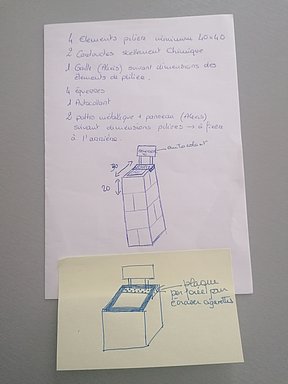 4 Elements piliers minimum 40x40
2 Cartouches scellement chimique
1 Grille (Alexis) suivant dimensions des
éléments de pilier.
4 équerres
1 Autocollant
2 pattes métallique + panneau (Alexis)
suivant dimensions piliers → à fixer
à l'arrière.
autocollant
30
20
plaque
perforée pour
écraser cigarettes